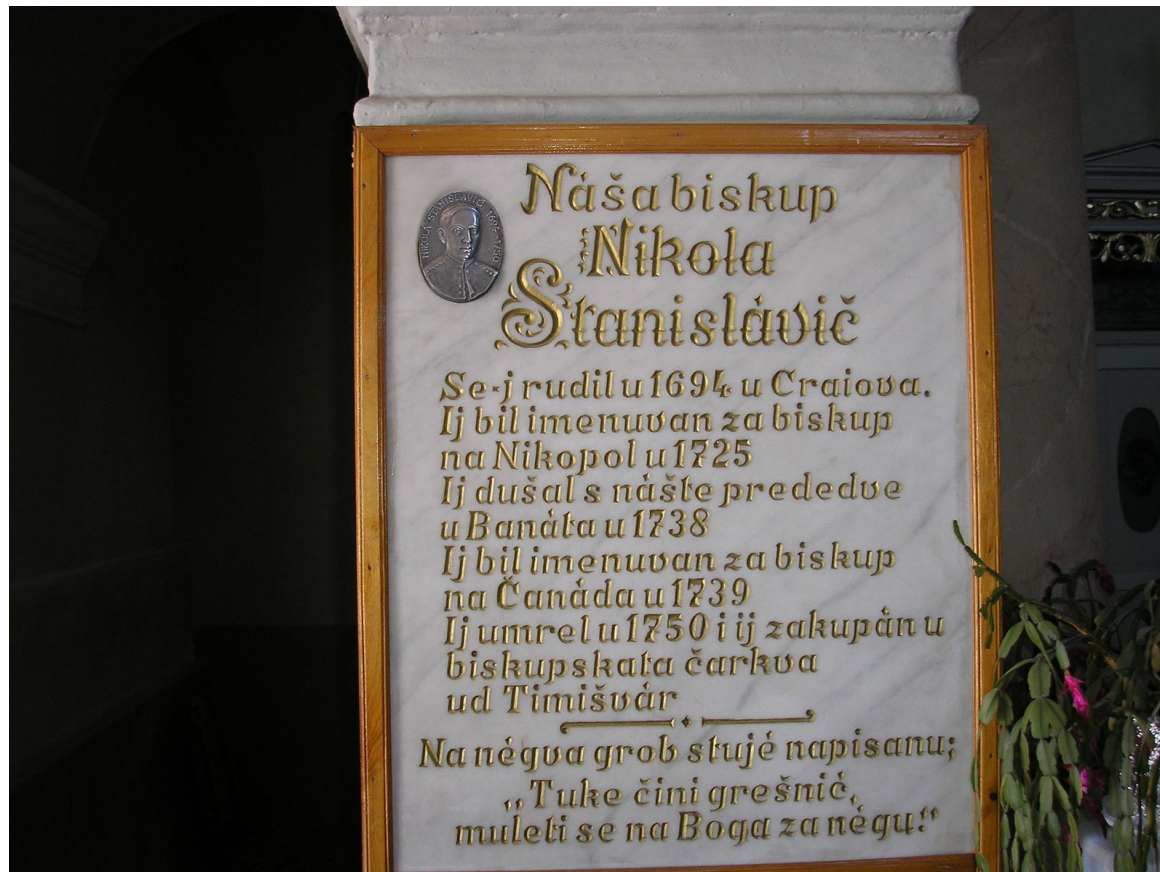 NIKOLA STANISLAVIČ 1694-1750
Náša biskup
Nikola
Stanislávič
Se-j rudil u 1694 u Craiova.
Ij bil imenuvan za biskup
na Nikopol u 1725
Ij dušal s nášte prededve
u Banáta u 1738
Ij bil imenuvan za biskup
na Čanáda u 1739
Ij umrel u 1750 i ij zakupán u
biskupskata čarkva
ud Timišvár
Na négva grob stujé napisanu;
„Tuke čini grešnić,
muleti se na Boga za négu.”